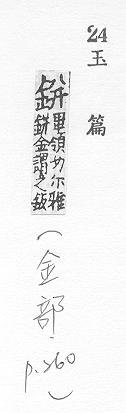 24 玉篇
鉼
領切尔雅
鉼金謂之鈑
(金部. p.260)